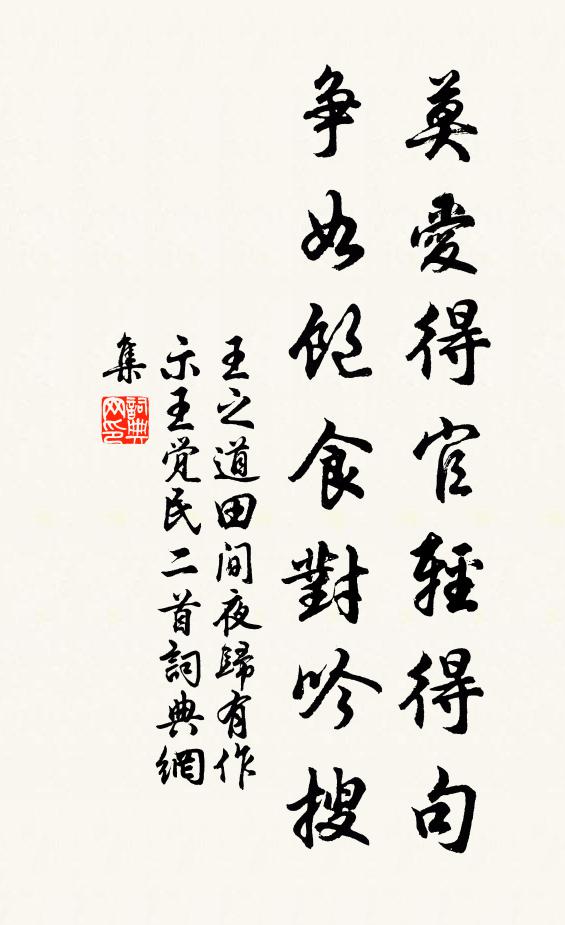 莫愛得官輕得句
爭如飽食對吟搜
王之道田間夜歸有作
示王覺民二首詞典網
集
詞典
网印